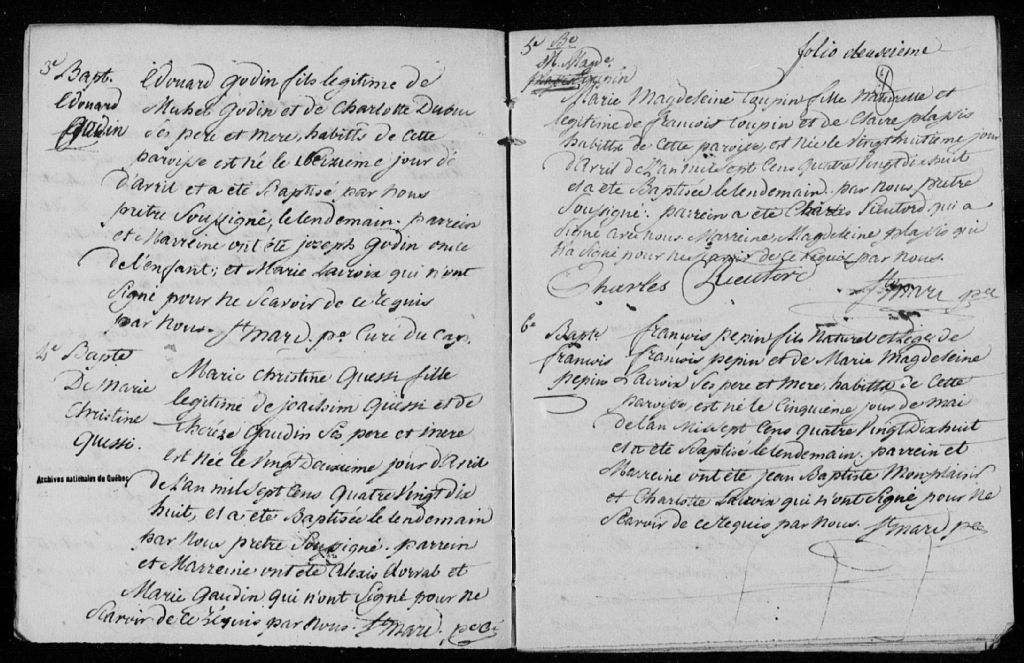 3e Bapt.
Edouard
Godin
Edouard Godin fils legitime de
Michel Godin et de Charlotte Dubuc
Ses pere et Mere, habitts de Cette
paroisse est né le
D'avril et a été Baptisé par nous
prêtre Soussigné, le lendemain. parrein
et Marreine ont été jozeph Godin oncle
de l'enfant; et Marie Lacroix qui n'ont
Signé pour ne Scavoir de ce Requis
par Nous. St marc. ptre Curé du Cap.
4e Bapte
De Marie
Christine
Quessi.
Marie Christine Quessi fille
legitime de joachim Quessi et de
therèze Gaudin Ses pere et mere
est Née le Vingt Deuxieme jour d'avril
Archives nationales du Québec
De L'an mil Sept Cens Quatre Vingt Dix
huit, et a eté Baptisée le lendemain
par nous pretre Soussigné. parrein
et Marreine ont été Alexis Dorval et
Marie Gaudin qui n'ont Signé pour ne
Scavoir de ce Réquis par Nous. St marc. ptre
folio deuxieme
5e Be
M. Magde
Marie Magdeleine toupin fille Naturelle et
legitime de françois toupin et de Claire plassis
habitts de Cette paroisse, est Née le Vingt huitieme jour
d'avril de L'an mil Sept Cens Quatre Vingt Dix huit
et a été Baptisée le lendemain. par nous prêtre
Sousigné. parrein a été Charles Rieutord qui a
Signé avec nous. Marreine, Magdeleine plassis qui
N'a Signé pour ne Scavoir de ce Requis par Nous.
Charles Rieutord
St marc ptre
6e
Bapte
françois
pepin
françois pepin fils Naturel et Lege de
françois pepin et de Marie Magdeleine
Lacroix Ses pere et Mere, habitts de Cette
paroisse, est né le Cinquieme jour de mai
de L'an Mil Sept Cens Quatre Vingt Dix huit
et a été Baptisé le lendemain. parrein et
Marreine ont été jean Baptiste Monplaisir
et Charlote Lacroix qui n'ont Signé pour Ne
Scavoir de ce Requis par Nous. St marc ptre